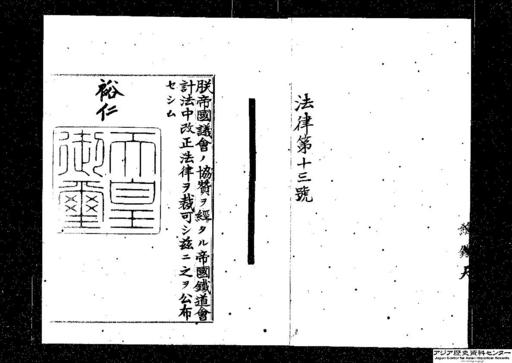 法律第十三號
朕帝國議會ノ協贊ヲ經タル帝國鐵道會
計法中改正法律ヲ裁可シ茲ニ之ヲ公布
セシム
裕仁
天皇
御璽
アジア歴史資料センター
Japan Center for Asian Historical Records